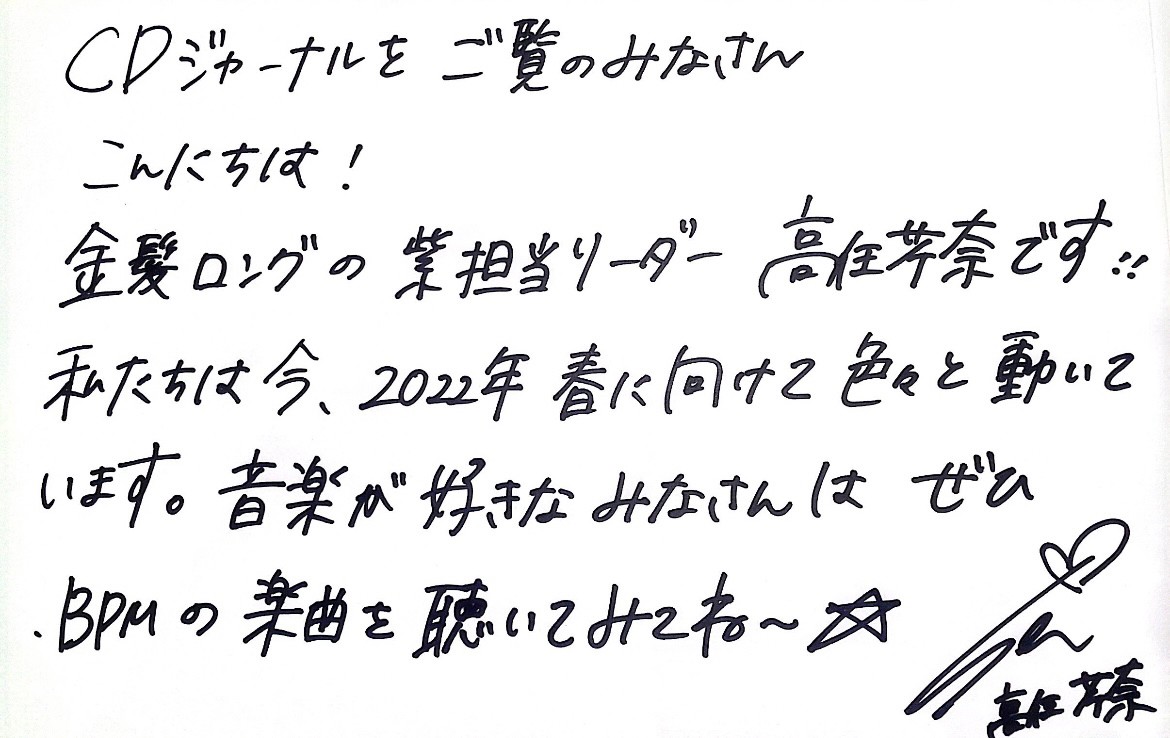 CDジャーナルを ご覧のみなさん
こんにちは！
金髪ロングの 紫担当リーダー 高任芹奈です!!
私たちは今、2022年 春に向けて 色々と 動いて
います。音楽が 好きな みなさんは ぜひ
BPMの 楽曲を 聴いてみてね〜☆
高任芹奈